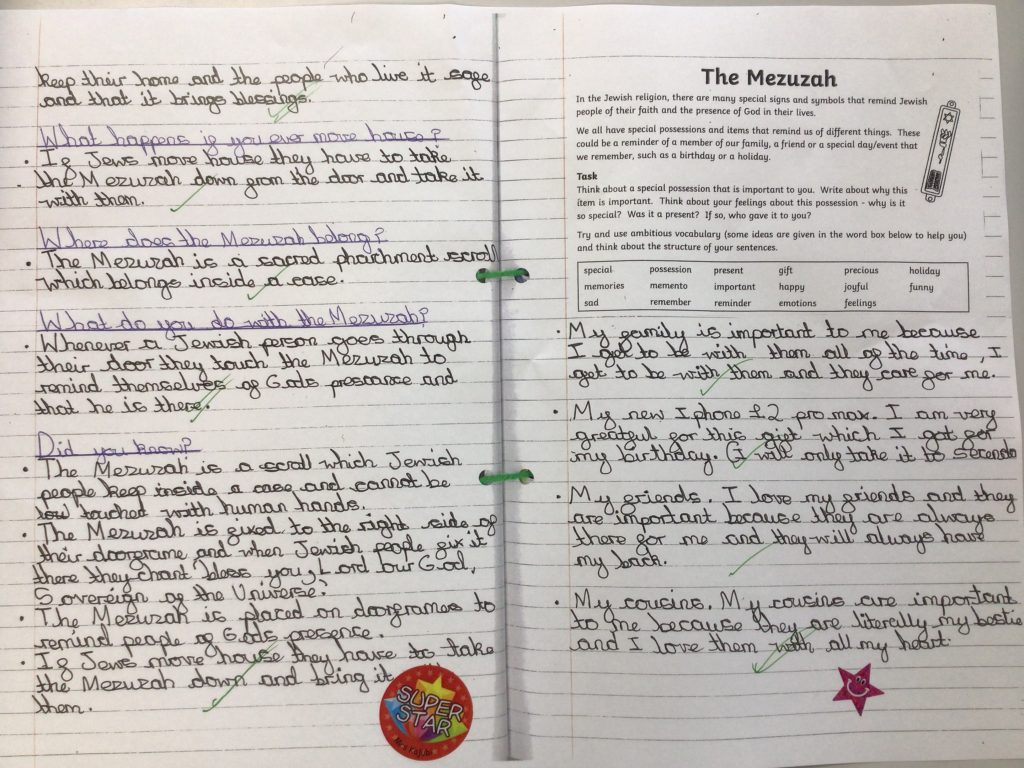 keep their home and the people who live it safe
and that it brings blessings.
What happens if you ever move house?
• If Jews move house they have to take
• the Mezuzah down from the door and take it
with them.
Where does the Mezuzah belong?
• The Mezuzah is a sacred pharchment scroll
which belongs inside a case.
What do you do with the Mezuzah?
• Whenever a Jewish person goes through
their door they touch the Mezuzah to
remind themselves of Gods prescance and
that he is there.
Did you know?
• The Mezuzah is a scroll which Jewish
people keep inside a case and cannot be
touched with human hands.
• The Mezuzah is fixed to the right side of
their doorframe and when Jewish people fix it
there they chant bless you, Lord our God,
Sovereign of the Universe.
• The Mezuzah is placed on doorframes to
remind people of Gods presence.
• If Jews move house they have to take
the Mezuzah down and bring it
them.
SUPER
STAR
The Mezuzah
In the Jewish religion, there are many special signs and symbols that remind Jewish
people of their faith and the presence of God in their lives.
We all have special possessions and items that remind us of different things. These
could be a reminder of a member of our family, a friend or a special day/event that
we remember, such as a birthday or a holiday.
Task
Think about a special possession that is important to you. Write about why this
item is important. Think about your feelings about this possession - why is it
so special? Was it a present? If so, who gave it to you?
Try and use ambitious vocabulary (some ideas are given in the word box below to help you)
and think about the structure of your sentences.
special possession present gift precious holiday
memories memento important happy joyful funny
sad remember reminder emotions feelings
• My family is important to me because
I get to be with them all of the time, I
get to be with them and they care for me.
• My new Iphone 12 pro max. I am very
greatful for this gift which I got for
my birthday. I will only take it to Secondo
• My friends. I love my friends and they
are important because they are always
there for me and they will always have
my back.
• My cousins. My cousins are important
to me because they are literally my bestie
and I love them with all my heart.